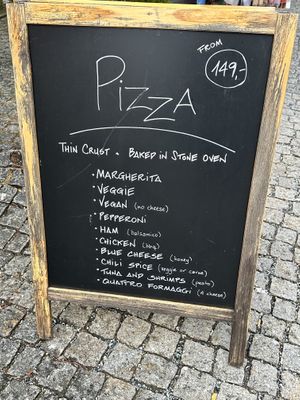 FROM
149,-
PIZZA
THIN CRUST - BAKED IN STONE OVEN
• MARGHERITA
• VEGGIE
• VEGAN (no cheese)
• PEPPERONI
• HAM (balsamico)
• CHICKEN (bbq)
• BLUE CHEESE (honey)
• CHILI SPICE (veggie or carne)
• TUNA AND SHRIMPS (pesto)
• QUATTRO FORMAGGI (4 cheese)